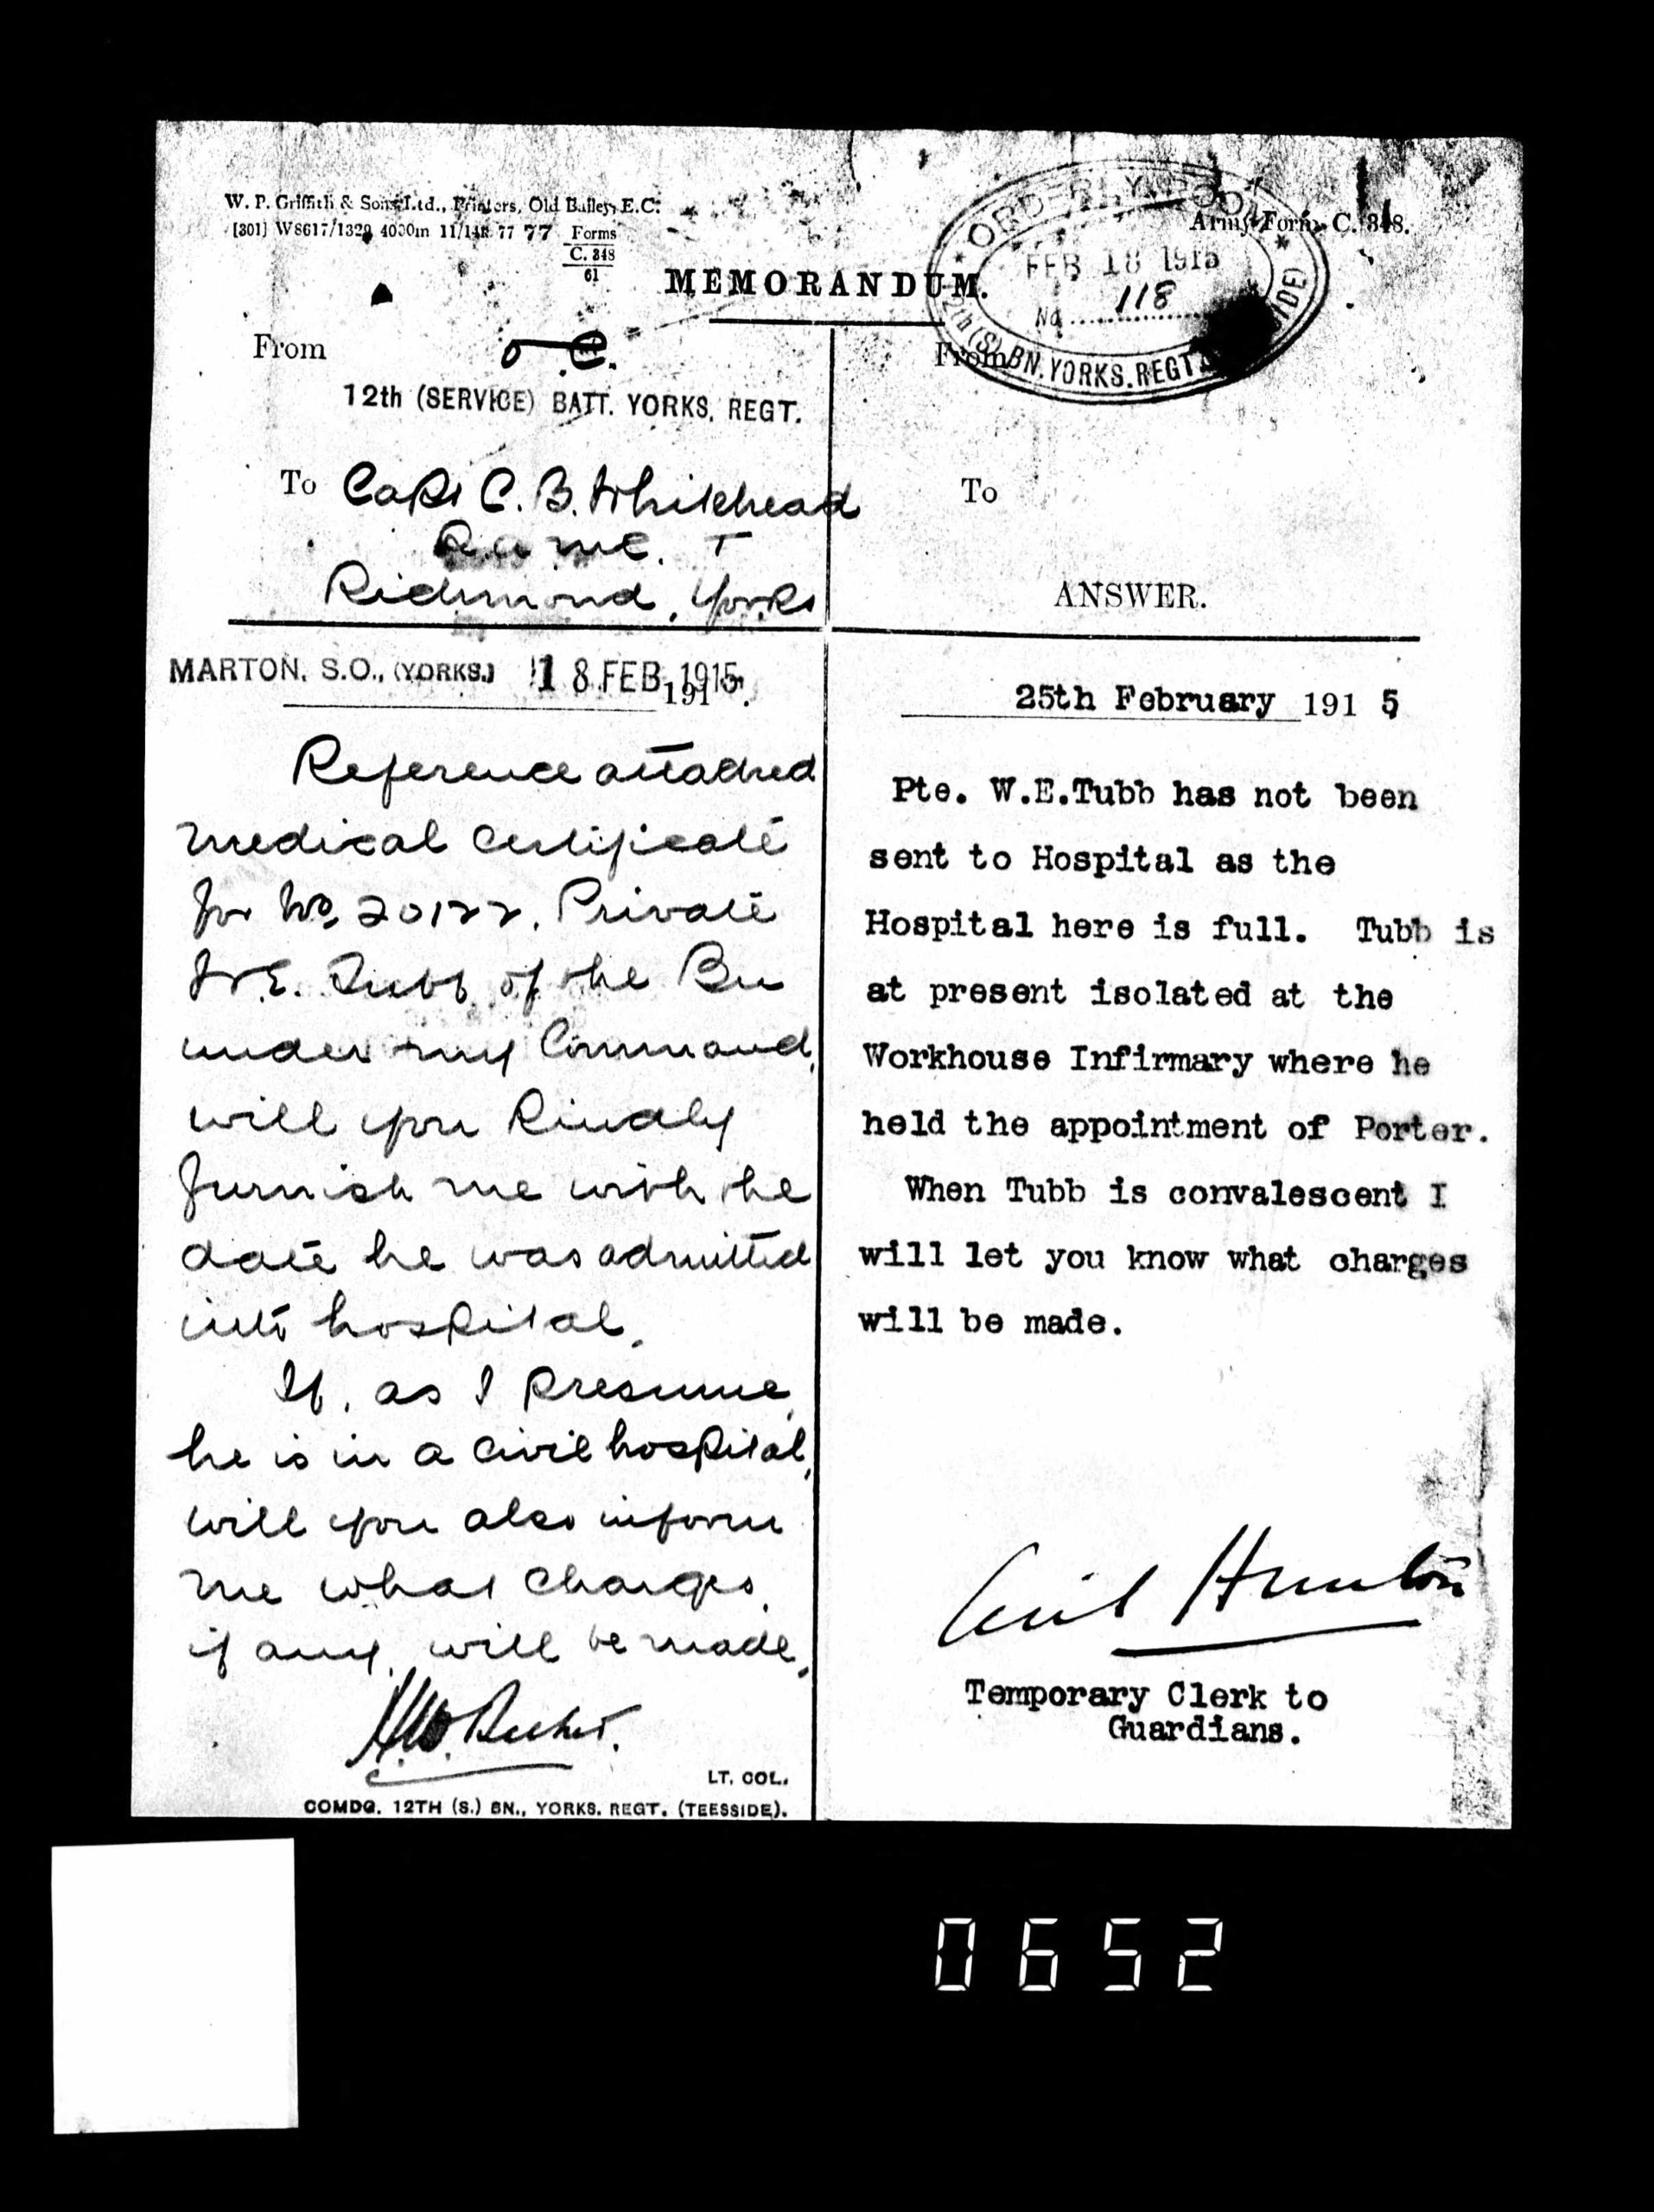 W. P. Griffith & Sons Ltd., Printers, Old Bailey, E.C.
[301] W8617/1329 4000m 11/14R 77 77 Forms
C. 348
61
Army Form C. 348.
MEMORANDUM.
ORDERLY ROOM
FEB 18 1915
No 118
12th (S) BN. YORKS. REGT.
From O.C.
12th (SERVICE) BATT. YORKS. REGT.
To Capt C. B. Whitehead
R.A.M.C. T
Richmond, Yorks
MARTON. S.O., (YORKS.) 18 FEB 1915
191
Reference attached
medical certificate
for No 20122, Private
W.E. Tubb of the Bn
under my Command,
will you kindly
furnish me with the
date he was admitted
into hospital.
If, as I presume,
he is in a civil hospital,
will you also inform
me what charges,
if any, will be made.
H.W. Becher.
LT. COL.
COMDG. 12TH (S.) BN., YORKS. REGT. (TEESSIDE).
From
To
ANSWER.
25th February 1915
Pte. W.E.Tubb has not been
sent to Hospital as the
Hospital here is full. Tubb is
at present isolated at the
Workhouse Infirmary where he
held the appointment of Porter.
When Tubb is convalescent I
will let you know what charges
will be made.
Temporary Clerk to
Guardians.
0652